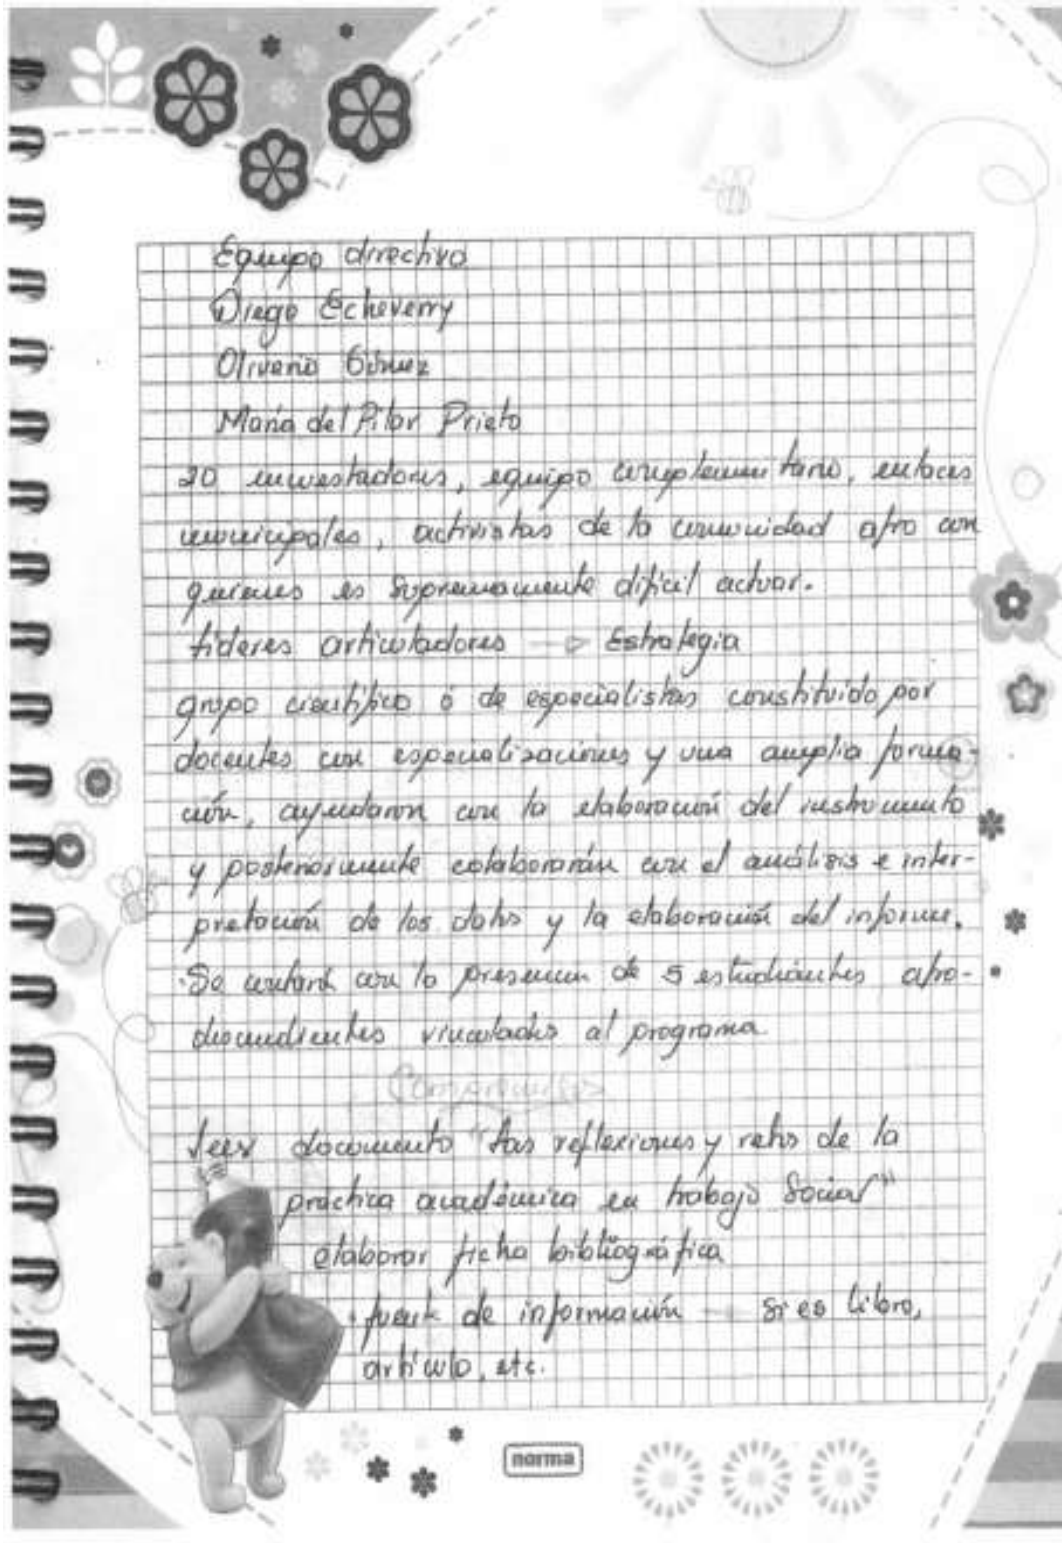 Equipo directivo
Diego Echeverry
Oliverio Gómez
María del Pilar Prieto
20 envestadores, equipo complementario, enlaces
municipales, activistas de la comunidad afro con
quienes es supremamente dificil actuar.
líderes articuladores → Estrategia
grupo científico ó de especialistas constituido por
docentes con especializaciones y una amplia forma-
ción, ayudaron con la elaboración del instrumento
y posteriormente colaborarán con el análisis e inter-
pretación de los datos y la elaboración del informe.
Se contará con la presencia de 5 estudiantes afro-
descendientes vinculados al programa
Compromisos
Leer documento "Las reflexiones y retos de la
práctica académica en trabajo Social"
elaborar ficha bibliográfica
· fuente de información → si es libro,
artículo, etc.
norma